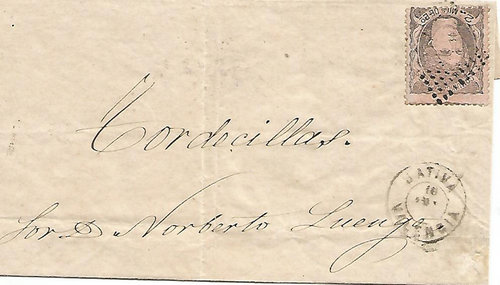 Tordecillas.
Sor. Dn. Norberto Luengo
JATIVA
16
VALENCIA